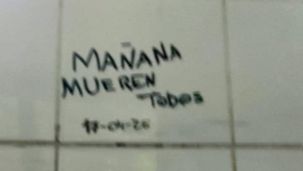 MAÑANA
MUEREN
Tob@s
17-04-26